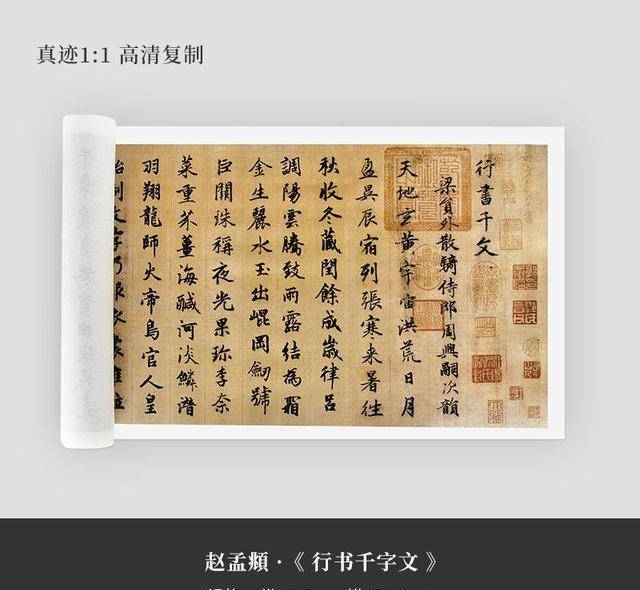 真迹1:1 高清复制
行書千文
梁員外散騎侍郎周興嗣次韻
天地玄黃宇宙洪荒日月
盈昃辰宿列張寒来暑往
秋收冬藏閏餘成歲律呂
調陽雲騰致雨露結為霜
金生麗水玉出崐岡劒號
巨闕珠稱夜光果珍李柰
菜重芥薑海鹹河淡鱗潛
羽翔龍師火帝鳥官人皇
始制文字乃服衣裳推位
赵孟頫·《 行书千字文 》